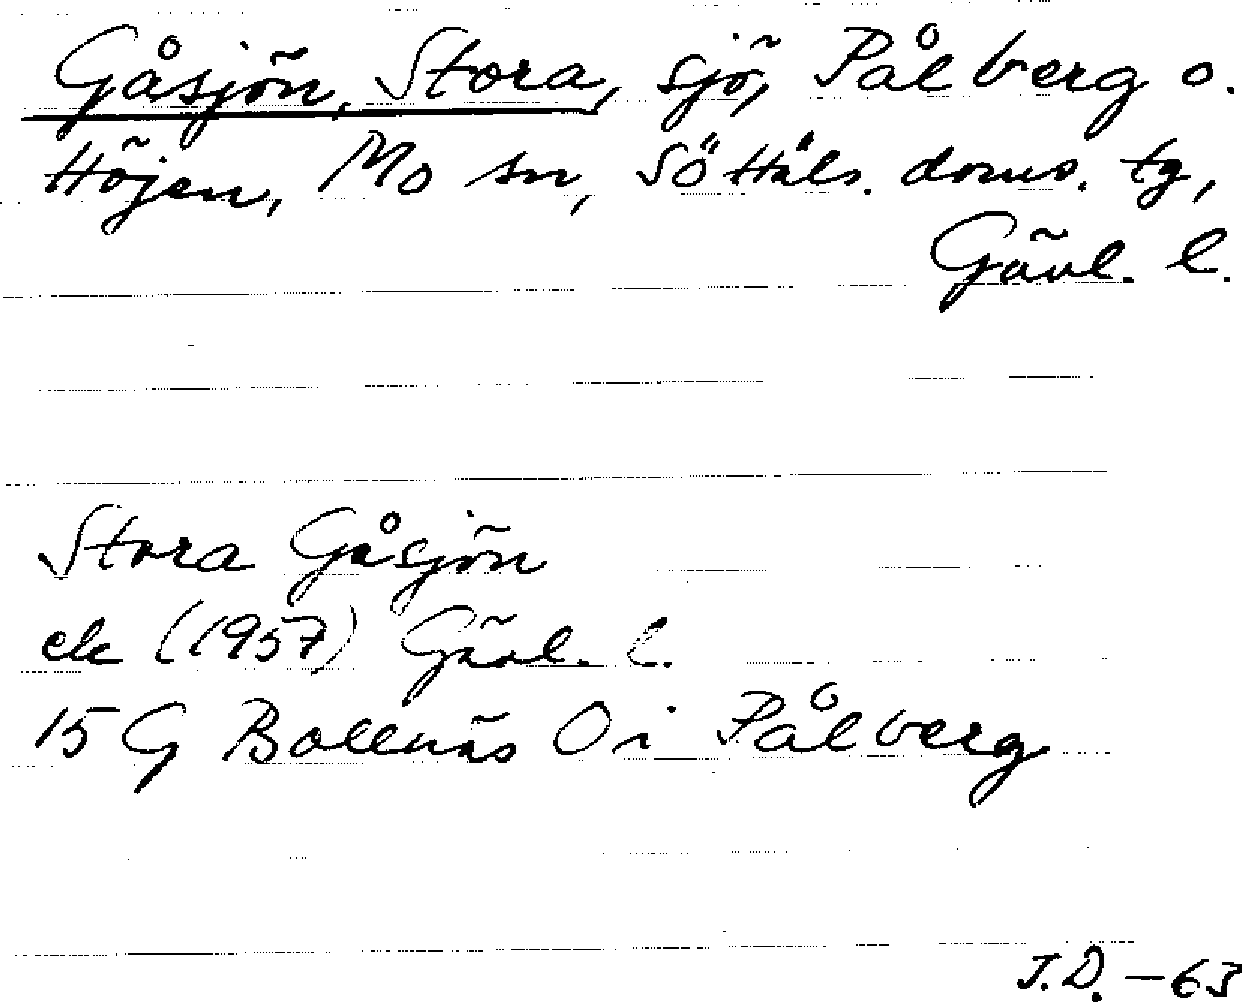 Gåsjön, Stora, sjö, Pålberg o.
Höjen, Mo sn, Sö Häls. doms. tg,
Gävl. l.
Stora Gåsjön
ek (1957) Gävl. l.
15 G Bollnäs Oi Pålberg
J.D. - 63